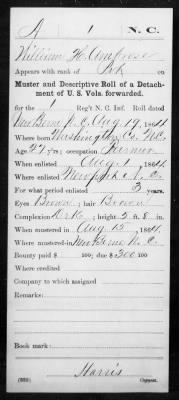 A 1 N. C.
William H. Ambrose
Appears with rank of Pvt on
Muster and Descriptive Roll of a Detach-
ment of U. S. Vols. forwarded.
for the 1 Reg't N. C. Inf. Roll dated
New Berne N. C. Aug 19, 1864
Where born Washington Co. N.C.
Age 27 y'rs; occupation Farmer
When enlisted Aug 1, 1864
Where enlisted N. C.
For what period enlisted 3 years.
Eyes Brown; hair Brown
Complexion Drk; height 5 ft. 8 in.
When mustered in Aug 15, 1864
Where mustered in New Berne N. C.
Bounty paid $ 100; due $ 300 100
Where credited
Company to which assigned
Remarks:
Book mark:
Harris
(339) Copyist.